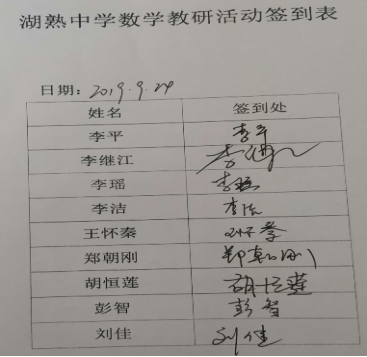 湖熟中学数学教研活动签到表
日期：2019.9.24
姓名 签到处
李平 李平
李继江 李继江
李瑶 李瑶
李洁 李洁
王怀秦
郑朝刚 郑朝刚
胡恒莲 胡恒莲
彭智 彭智
刘佳 刘佳